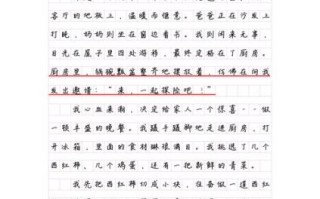 客厅的地板上，温暖而惬意。爸爸正在沙发上
打盹，奶奶则坐在窗边看书。我则闲来无事，
目光在屋子里四处游移，最终定格在了厨房。
厨房里，锅碗瓢盆整齐地摆放着，仿佛在向我
发出邀请：“来，一起探险吧！”
我心血来潮，决定给家人一个惊喜——做
一顿丰盛的晚餐。我蹑手蹑脚地走进厨房，打
开冰箱，里面的食材琳琅满目。我挑选了几个
西红柿、几个鸡蛋，还有一把新鲜的青菜。
我先把西红柿切成小块，准备做一道西红